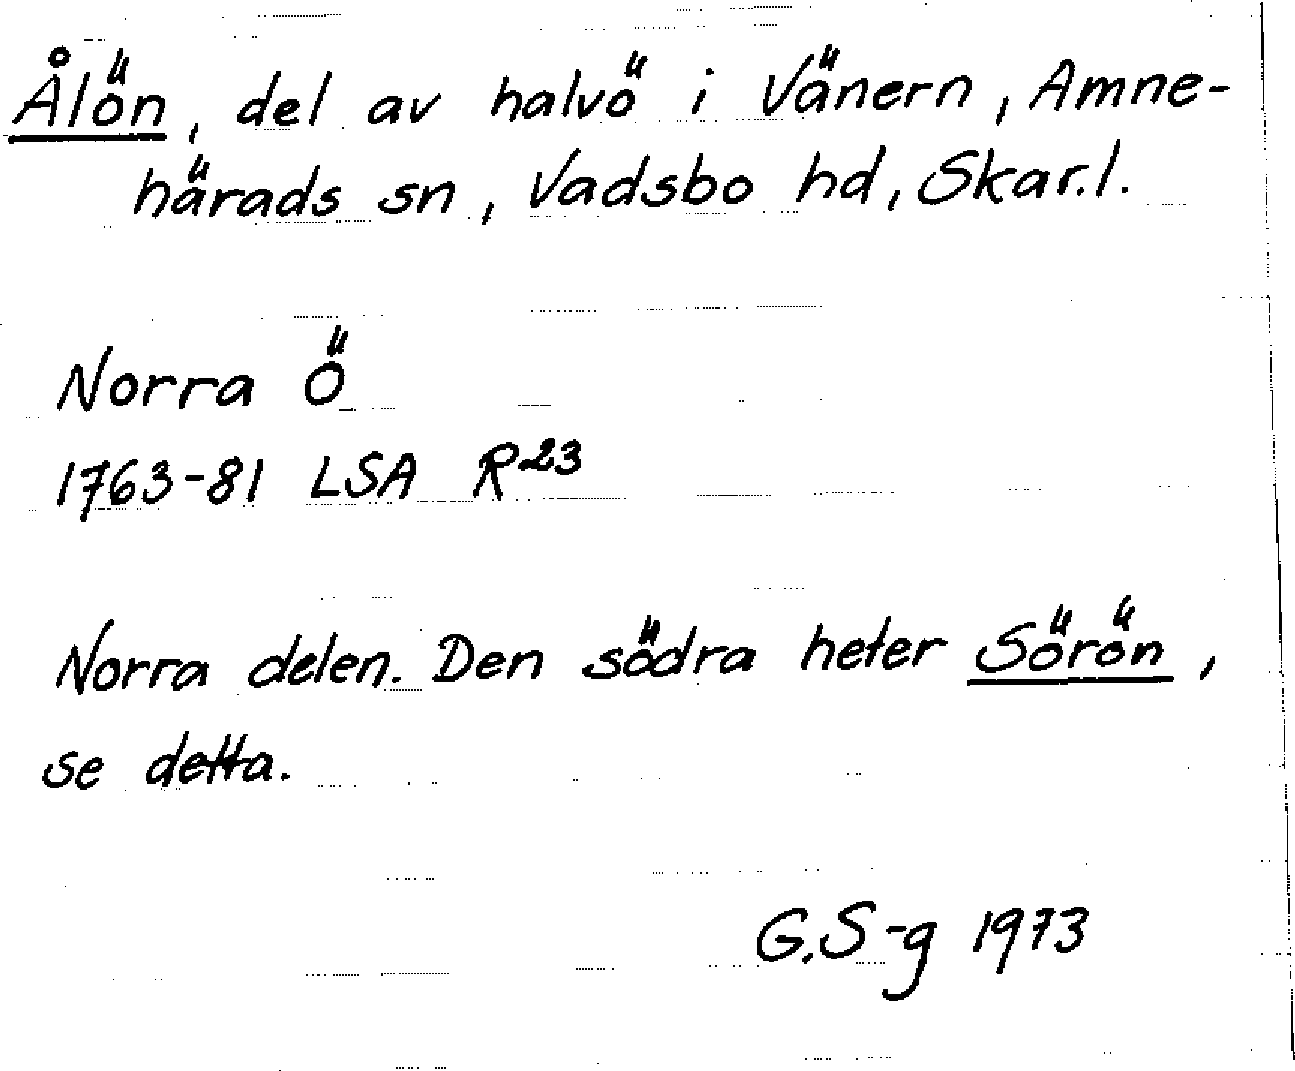 Ålön, del av halvö i Vänern, Amne-
härads sn, Vadsbo hd, Skar.l.
Norra Ö
1763-81 LSA R23
Norra delen. Den södra heter Sörön,
se detta.
G.S-g 1973